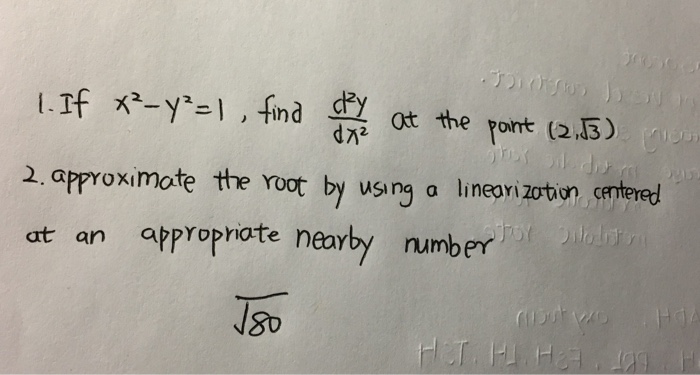 1. If x²-y²=1, find d²y/dx² at the point (2,√3)
2. approximate the root by using a linearization centered
at an appropriate nearby number
√80